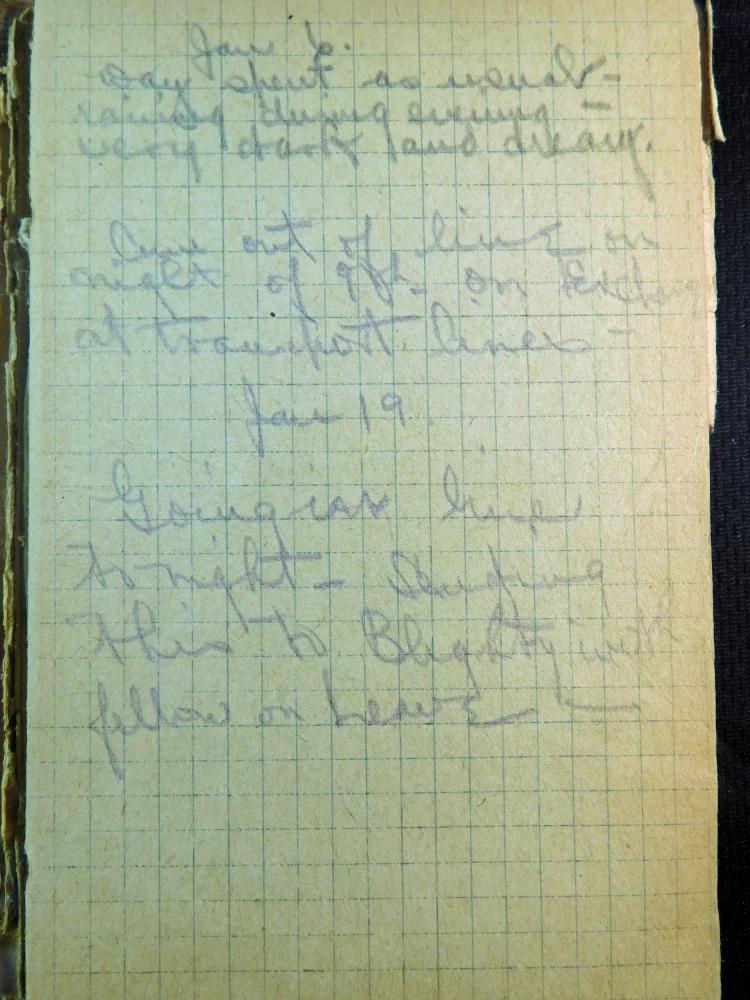 Jan 6.
Day spent as usual -
raining during evening -
very dark and dreary.
Came out of line on
night of 9th - on
at transport lines -
Jan 19
Going in line
to night - Sending
this to Blighty with
fellow on Leave —